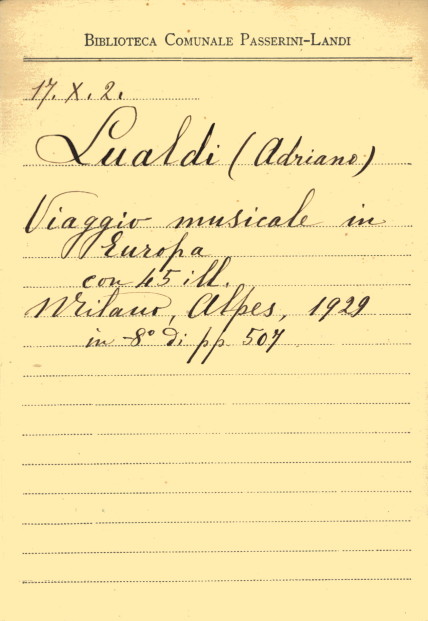 BIBLIOTECA COMUNALE PASSERINI-LANDI
17. X. 2.
Lualdi (Adriano)
Viaggio musicale in
Europa
con 45 ill.
Milano, Alpes, 1929
in -8° di pp. 507